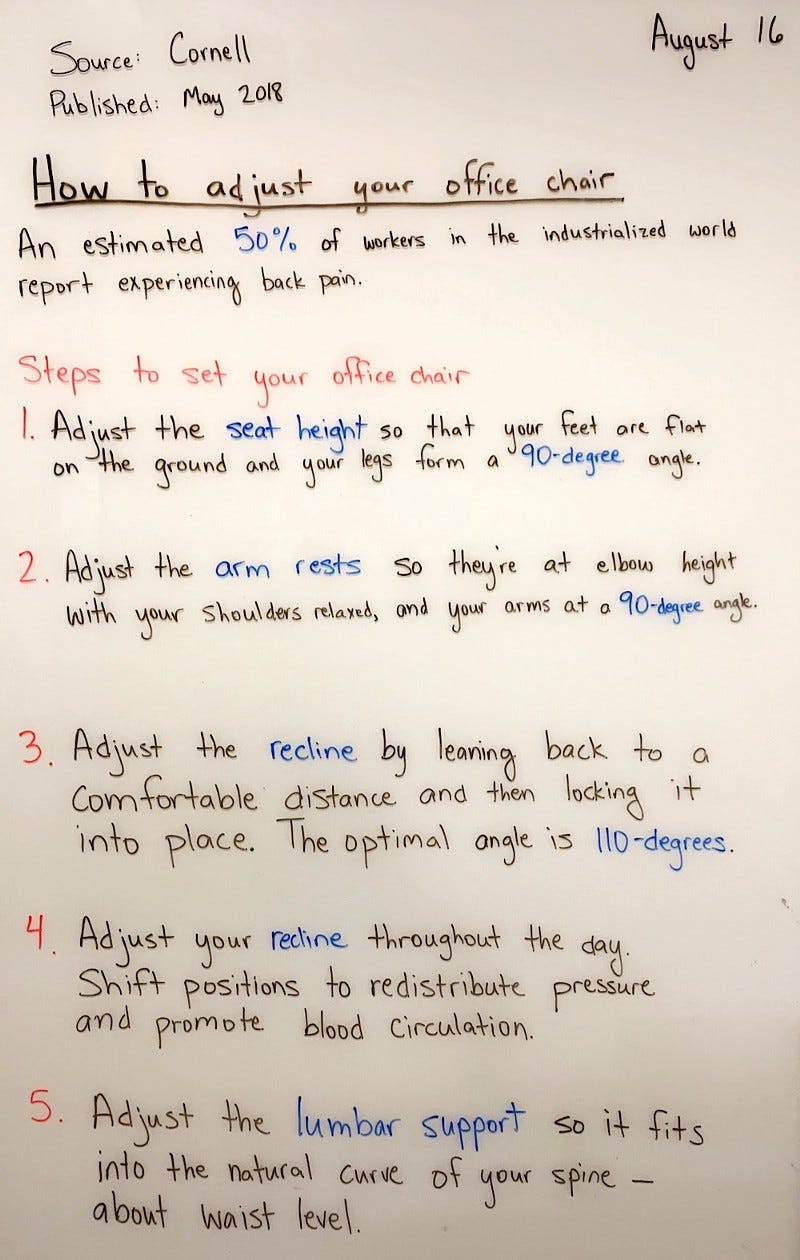 August 16
Source: Cornell
Published: May 2018
How to adjust your office chair
An estimated 50% of workers in the industrialized world
report experiencing back pain.
Steps to set your office chair
1. Adjust the seat height so that your feet are flat
on the ground and your legs form a 90-degree angle.
2. Adjust the arm rests so they're at elbow height
with your shoulders relaxed, and your arms at a 90-degree angle.
3. Adjust the recline by leaning back to a
comfortable distance and then locking it
into place. The optimal angle is 110-degrees.
4. Adjust your recline throughout the day.
Shift positions to redistribute pressure
and promote blood circulation.
5. Adjust the lumbar support so it fits
into the natural curve of your spine –
about waist level.